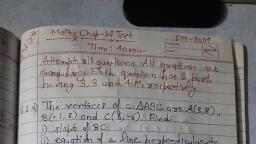 Maths Chap-wise Test FM-80M
Time: 40min
Attempt all questions. All questions are
compulsory. Each question has 3 parts
having 3, 3 and 4 M respectively
The vertices of a ΔABC are A(3,8),
B(-1,2) and C(6,-6). Find
i) slope of BC
ii) equation of a line perpendicular to